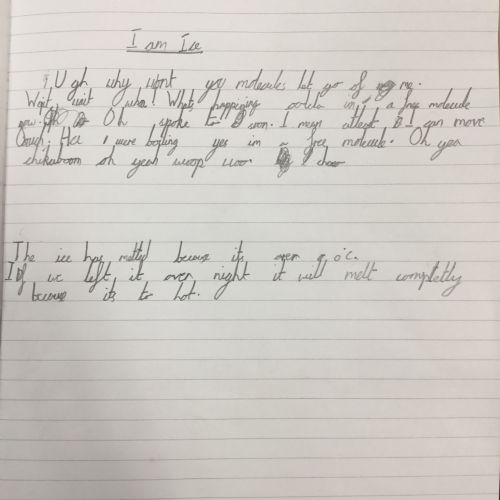 I am Ice
Ugh why wont you molecules let go of me.
Wait wait wha! Whats happening im a free molecule
now. Oh spoke to soon. I mean atleast I can move
Oouh, Ha were boiling yes im a free molecule. Oh yea
oh yeah woop woo.
The ice has melted becouse its over 0°c.
If we left it over night it will melt completly
becouse its to hot.